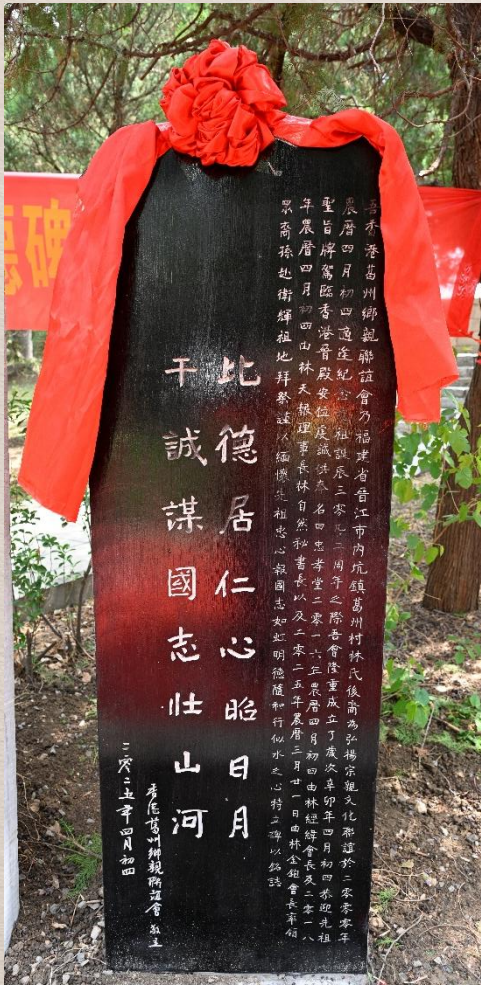 吾香港葛州鄉親聯誼會乃福建省晉江市內坑鎮葛州村林氏後裔為弘揚宗親文化聯誼於二零零零年
農曆四月初四適逢紀念祖誕辰三零九二周年之際吾會隆重成立了歲次辛卯年四月初四恭迎先祖
聖旨牌駕臨香港晉殿安位虔誠供奉名曰忠孝堂二零一六年農曆四月初四由林經緯會長及二零一八
年農曆四月初四由林天賜理事長林自然秘書長以及二零二五年農曆三月廿一日由林金會長率領
眾裔孫赴衛輝祖地拜祭謹以緬懷先祖忠心報國志如虹明德隨和行似水之心特立碑以銘誌
比德居仁心昭日月
干誠謀國志壯山河
香港葛州鄉親聯誼會 敬立
二零二五年四月初四
德碑